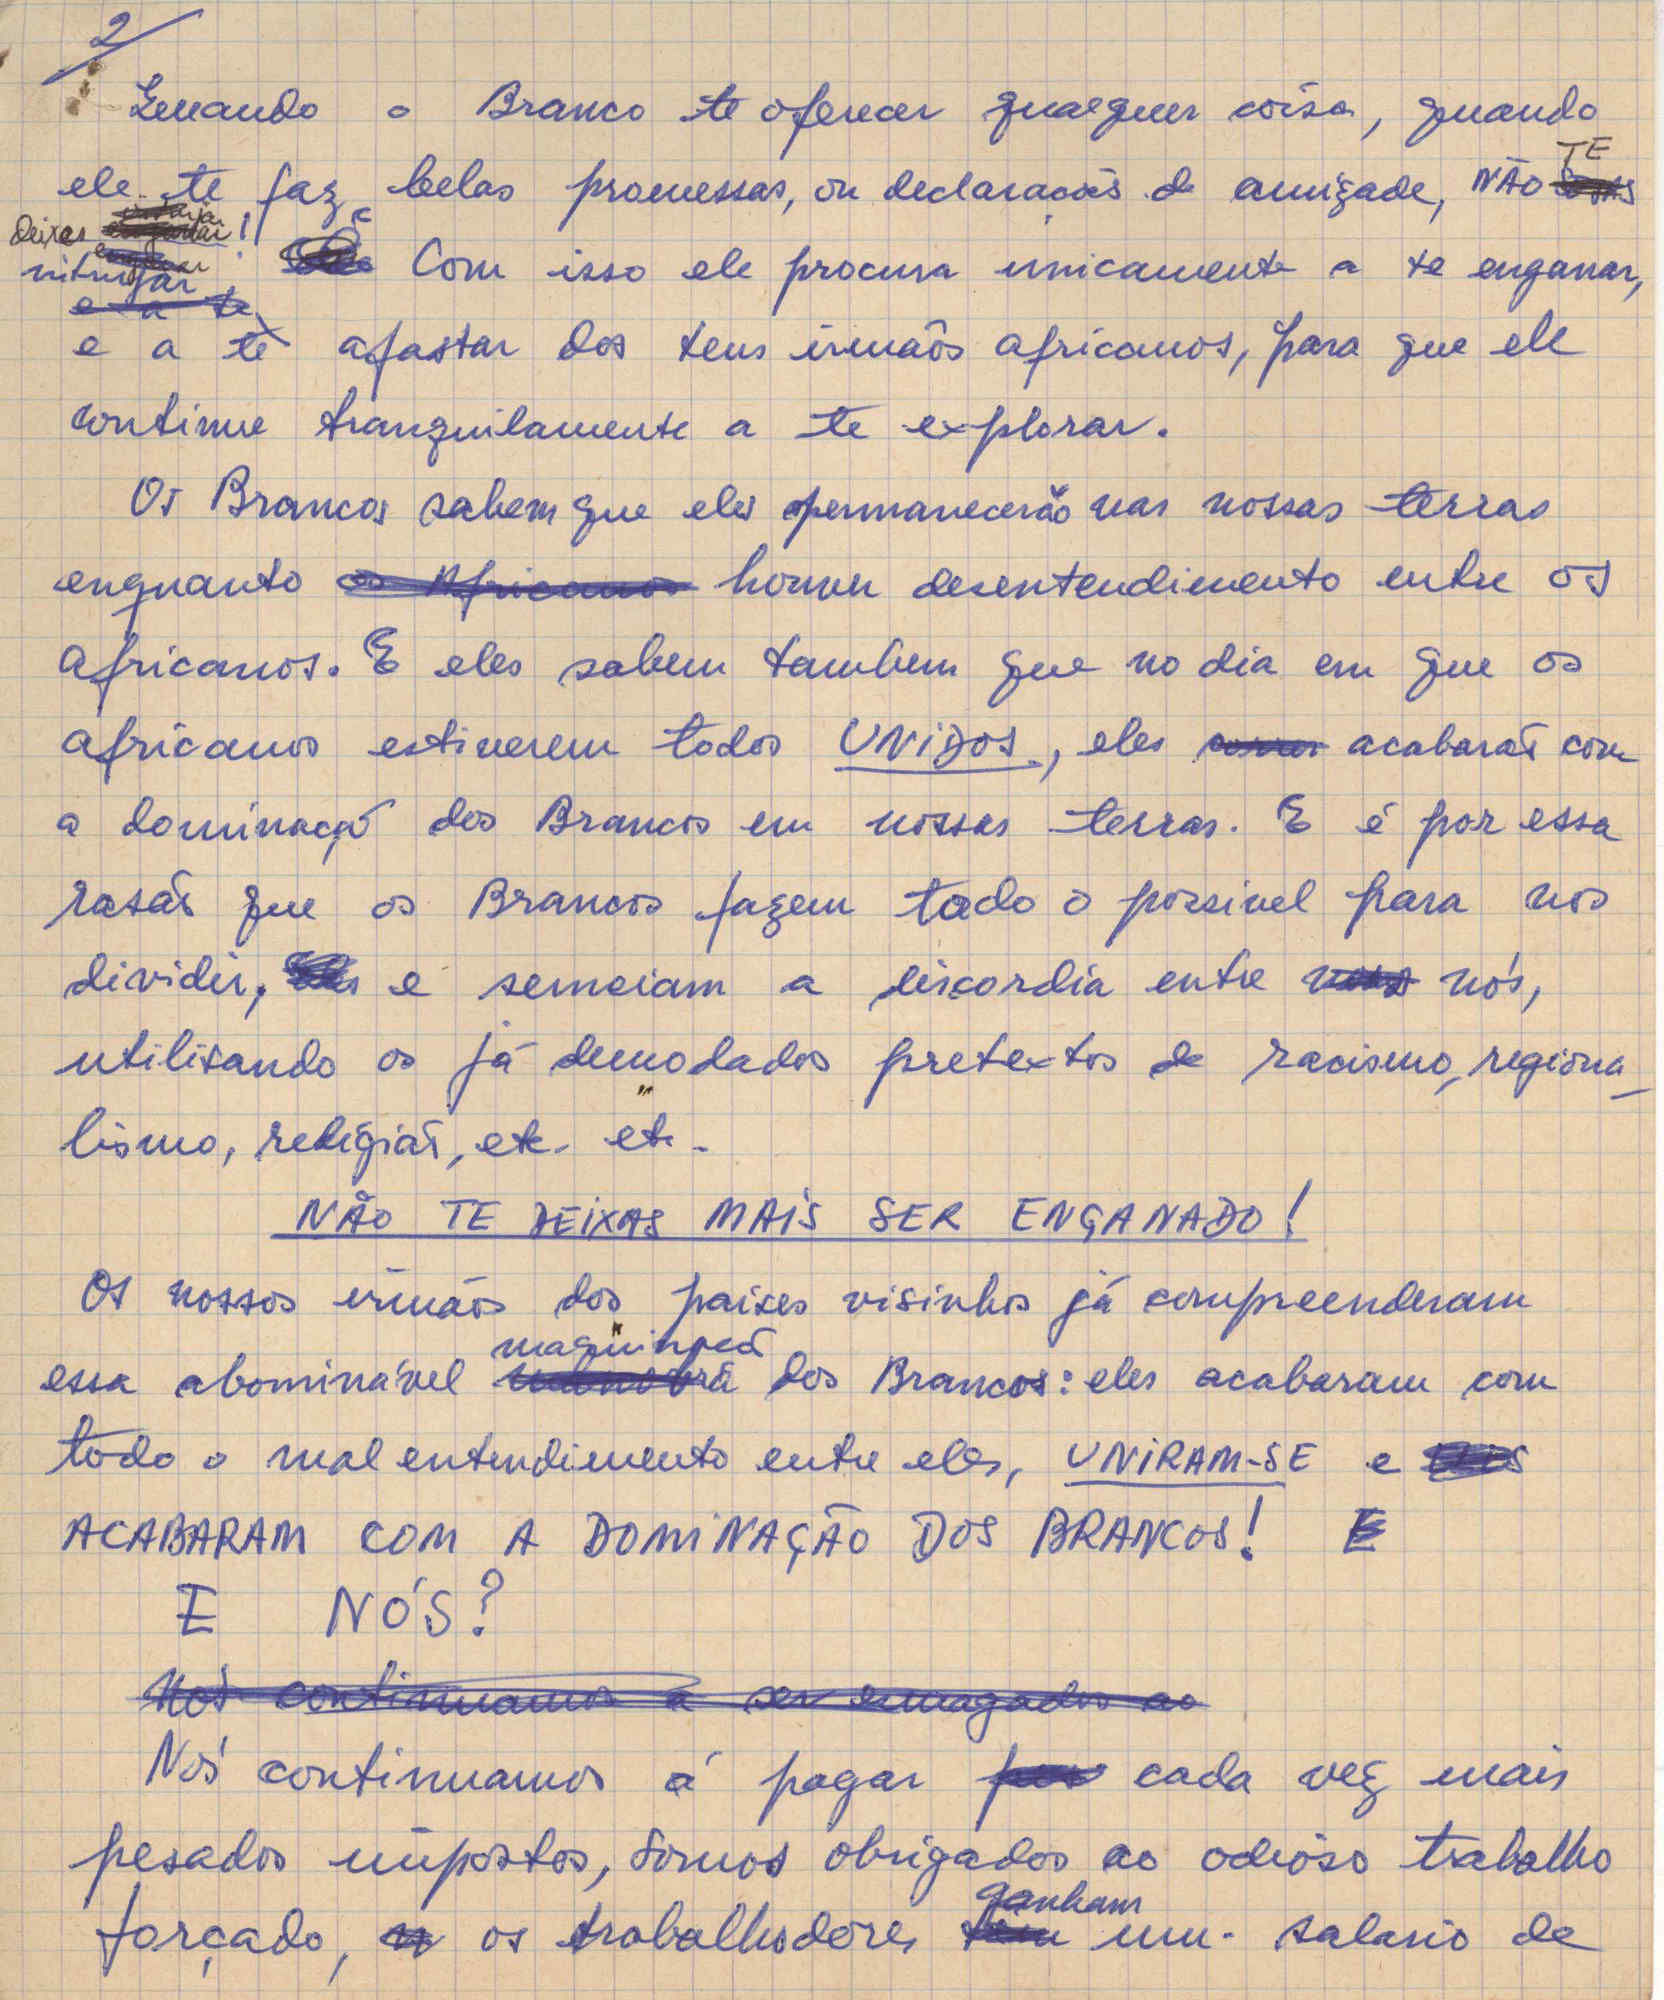 2/
Quando o Branco te oferecer qualquer coisa, quando
ele te faz belas promessas, ou declaracões de amizade, NÃO TE
deixes intrujar! Com isso ele procura unicamente a te enganar,
e a te
e a te afastar dos teus irmãos africanos, para que ele
continue tranquilamente a te explorar.
Os Brancos sabem que eles permanecerão nas nossas terras
enquanto os Africanos houver desentendimento entre os
africanos. E eles sabem tambem que no dia em que os
africanos estiverem todos UNIDOS, eles acabarão com
a dominação dos Brancos em nossas terras. E é por essa
rasão que os Brancos fazem todo o possivel para nos
dividir, e semeiam a discordia entre nós,
utilisando os já demodados pretextos de racismo, regiona-
lismo, religião, etc. etc.
NÃO TE DEIXAS MAIS SER ENGANADO!
Os nossos irmãos dos paises visinhos já compreenderam
essa abominável maquinação dos Brancos: eles acabaram com
todo o mal entendimento entre eles, UNIRAM-SE e
ACABARAM COM A DOMINAÇÃO DOS BRANCOS! E
E NÓS?
Nós continuamos a ser esmagados ao
Nós continuamos á pagar cada vez mais
pesados impostos, somos obrigados ao odioso trabalho
forçado, os trabalhadores ganham um salario de